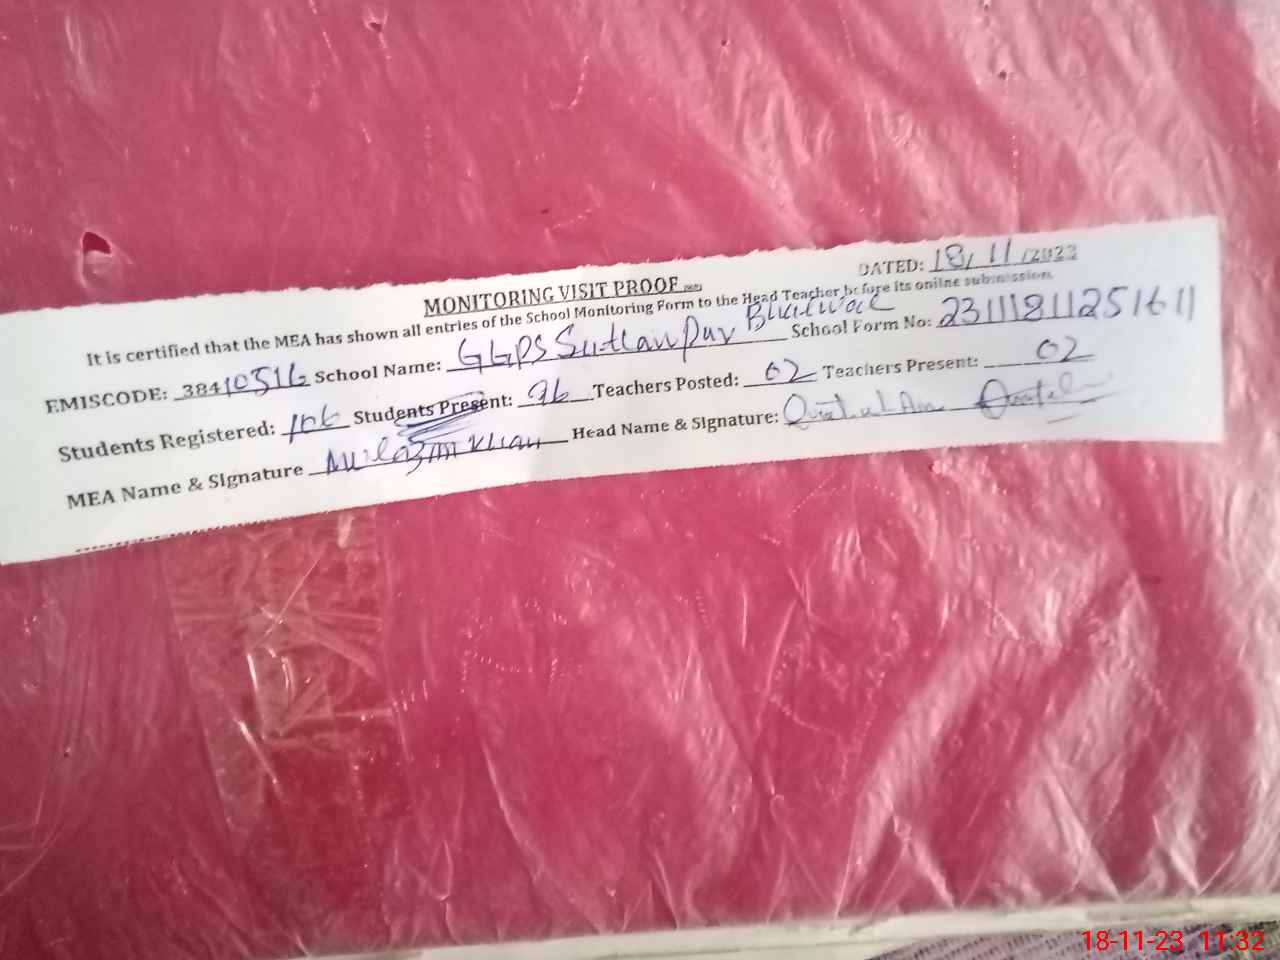 MONITORING VISIT PROOF
DATED: 18/11/2023
It is certified that the MEA has shown all entries of the School Monitoring Form to the Head Teacher before its online submission.
EMISCODE: 38410516 School Name: GGPS Sultan Pur School Form No: 23111811251611
Students Registered: 106 Students Present: 96 Teachers Posted: 02 Teachers Present: 02
MEA Name & Signature Khan Head Name & Signature:
18-11-23 11:32